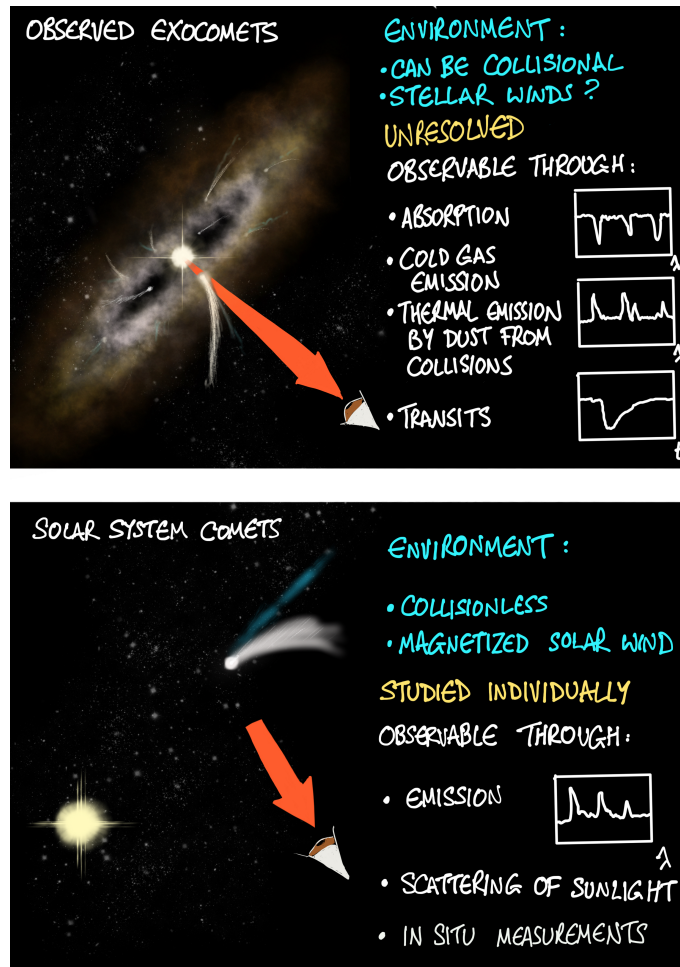 OBSERVED EXOCOMETS
ENVIRONMENT:
• CAN BE COLLISIONAL
• STELLAR WINDS?
UNRESOLVED
OBSERVABLE THROUGH:
• ABSORPTION
λ
• COLD GAS
EMISSION
• THERMAL EMISSION
BY DUST FROM
COLLISIONS
λ
• TRANSITS
t
SOLAR SYSTEM COMETS
ENVIRONMENT:
• COLLISIONLESS
• MAGNETIZED SOLAR WIND
STUDIED INDIVIDUALLY
OBSERVABLE THROUGH:
• EMISSION
λ
• SCATTERING OF SUNLIGHT
• IN SITU MEASUREMENTS